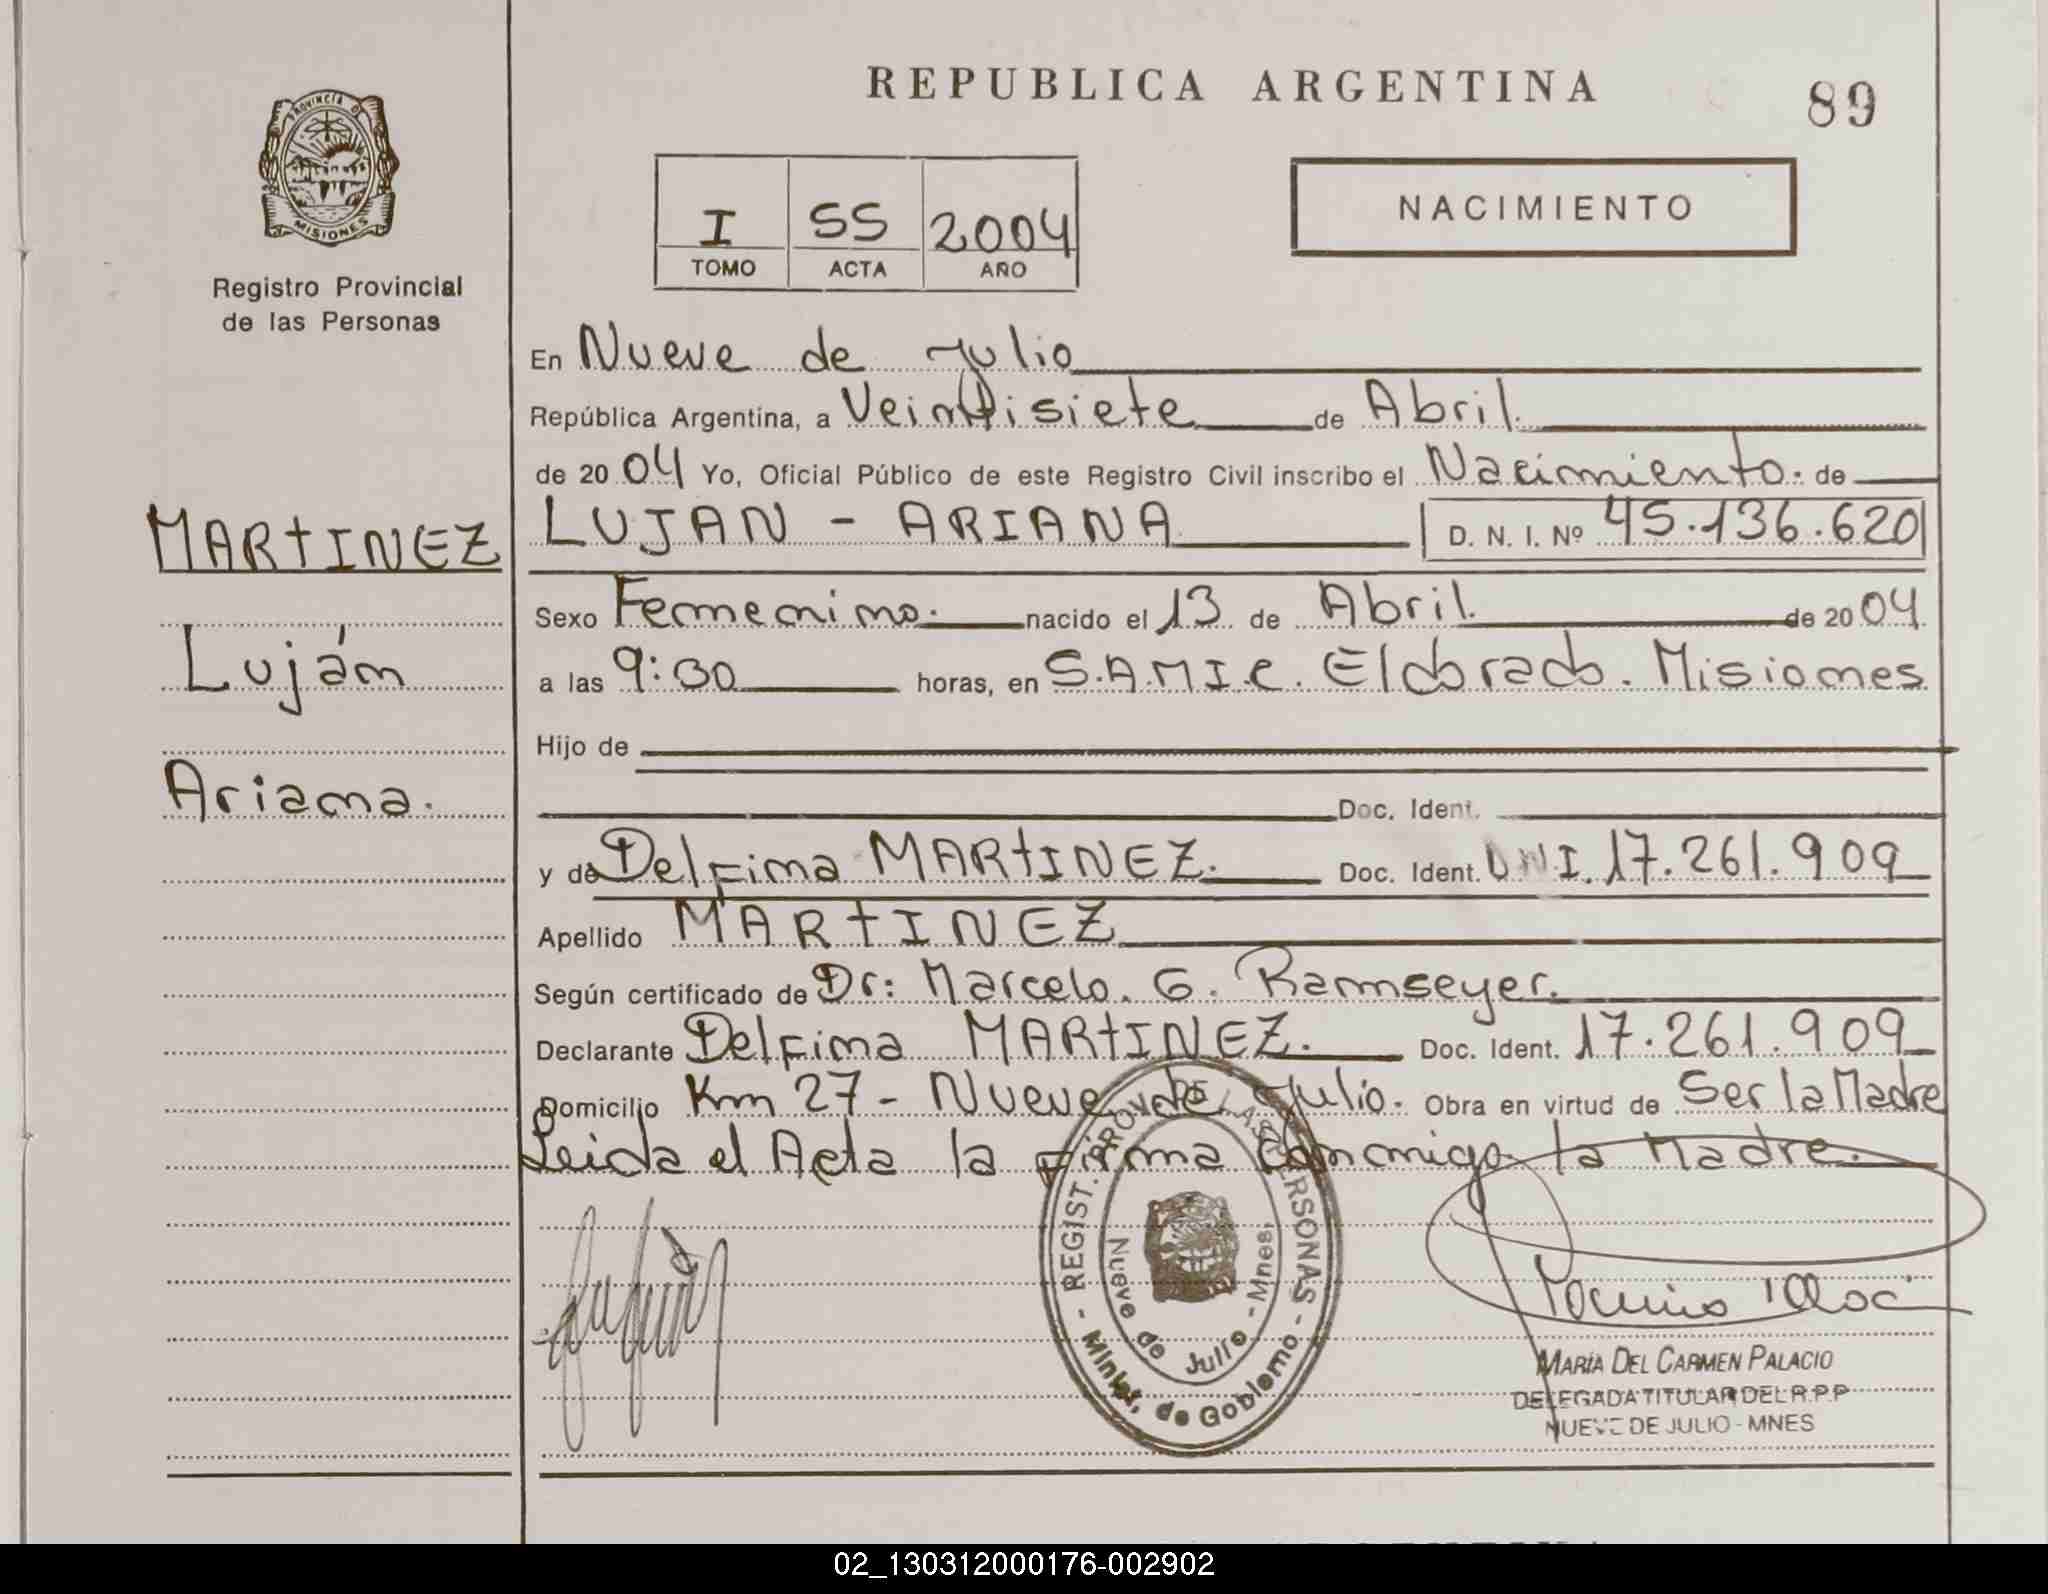 REPUBLICA ARGENTINA
89
PROVINCIA DE
MISIONES
Registro Provincial
de las Personas
I SS 2004
TOMO ACTA AÑO
NACIMIENTO
En Nueve de Julio
República Argentina, a Veintisiete de Abril.
de 2004 Yo, Oficial Público de este Registro Civil inscribo el Nacimiento. de
MARTINEZ
Luján
Ariana.
LUJAN - ARIANA D. N. I. Nº 45.136.620
Sexo Femenino. nacido el 13 de Abril. de 2004
a las 9:30 horas, en S.A.M.I.C. Eldorado. Misiones
Hijo de
Doc. Ident.
y de Delfina MARTINEZ. Doc. Ident. DNI. 17.261.909
Apellido MARTINEZ
Según certificado de Dr: Marcelo. G. Ramseyer.
Declarante Delfina MARTINEZ. Doc. Ident. 17.261.909
Domicilio Km 27 - Nueve de Julio. Obra en virtud de Ser la Madre
Leida el Acta la firma Conmigo la Madre.
- REGIST. PROV. DE LAS PERSONAS -
Minist. de Gobierno
Nueve de Julio - Mnes.
MARÍA DEL CARMEN PALACIO
DELEGADA TITULAR DEL R.P.P
NUEVE DE JULIO - MNES
02_130312000176-002902